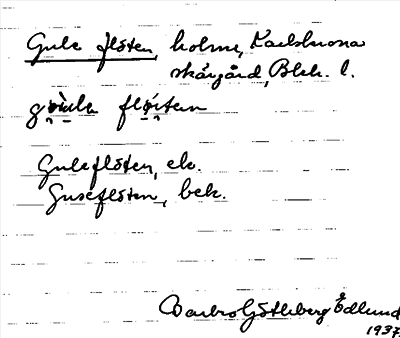 Gule flöten, holme, Karlskrona
skärgård, Blek. l.
flöten
Guleflöten, ek.
Guseflöten, bek.
Barbro Götleberg Edlund
1937.